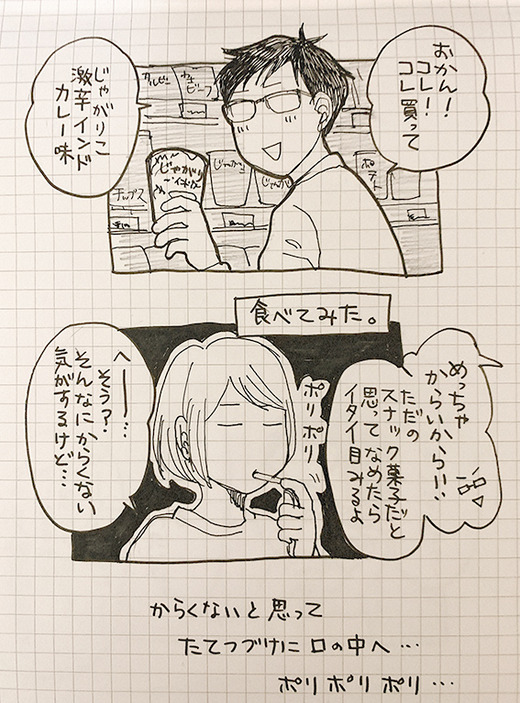 おかん！
コレ！
コレ買って
じゃがりこ
激辛インド
カレー味
カルビー
チップス
じゃがりこ
ポテト
食べてみた。
めっちゃ
からいから!!!
ただの
スナック菓子だと
思ってなめたら
イタイ目みるよ
ポリポリ
へー…
そう？
そんなにからくない
気がするけど…
からくないと思って
たてつづけに口の中へ…
ポリポリポリ…